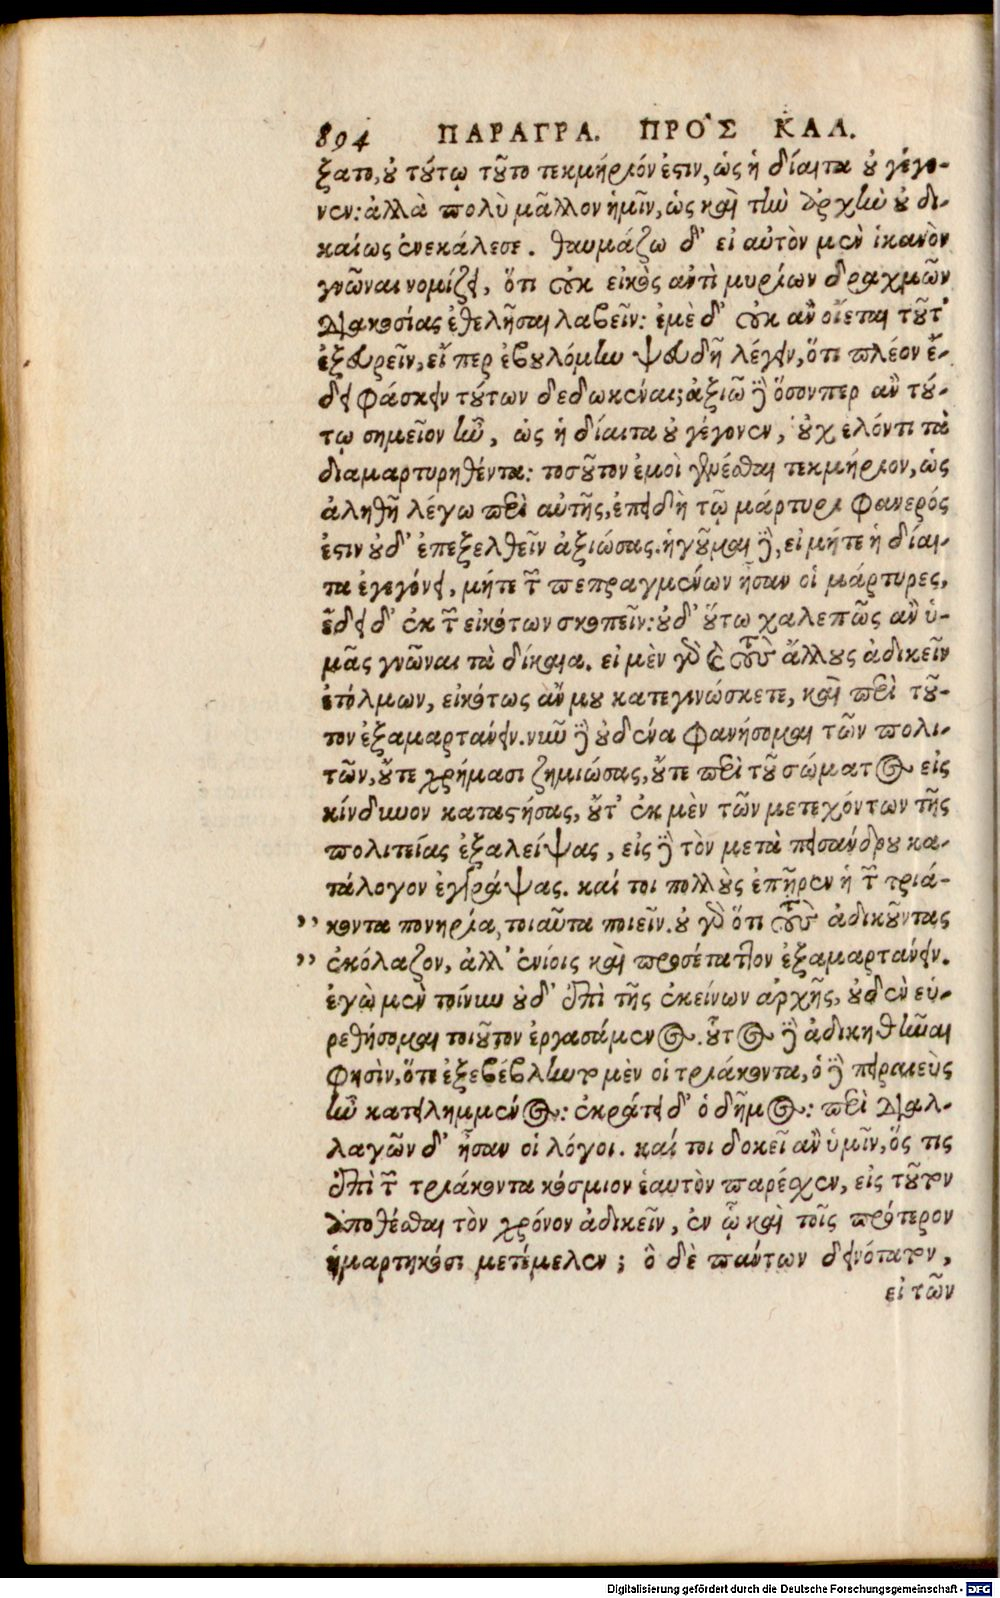 894 ΠΑΡΑΓΡΑ. ΠΡΟ῀Σ ΚΑΛ.
ξατο, οὐ τούτῳ τοῦτο τεκμήριόν ἐστιν, ὡς ἡ δίαιτα οὐ γέγο-
νεν: ἀλλὰ πολὺ μᾶλλον ἡμῖν, ὡς καὶ τὴν ἀρχὴν οὐ δι-
καίως ἐνεκάλεσε. θαυμάζω δ' εἰ αὐτὸν μὲν ἱκανὸν
γνῶναι νομίζει, ὅτι οὐκ εἰκὸς ἀντὶ μυρίων δραχμῶν
διακοσίας ἐθελῆσαι λαβεῖν: ἐμὲ δ' οὐκ ἂν οἴεται τοῦτ'
ἐξευρεῖν, εἴ περ ἐβουλόμην ψευδῆ λέγειν, ὅτι πλέον ἔ-
δει φάσκειν τούτων δεδωκέναι; ἀξιῶ δὲ ὅσονπερ ἂν τού-
τῳ σημεῖον ἦν, ὡς ἡ δίαιτα οὐ γέγονεν, οὐχ ἑλόντι τὰ
διαμαρτυρηθέντα: τοσοῦτον ἐμοὶ γενέσθαι τεκμήριον, ὡς
ἀληθῆ λέγω περὶ αὐτῆς, ἐπειδὴ τῷ μάρτυρι φανερός
ἐστιν οὐδ' ἐπεξελθεῖν ἀξιώσας. ἡγοῦμαι δὲ, εἰ μήτε ἡ δίαι-
τα ἐγεγόνει, μήτε τῶν πεπραγμένων ἦσαν οἱ μάρτυρες,
ἔδει δ' ἐκ τῶν εἰκότων σκοπεῖν: οὐδ' οὕτω χαλεπῶς ἂν ὑ-
μᾶς γνῶναι τὰ δίκαια. εἰ μὲν γὰρ καὶ τοὺς ἄλλους ἀδικεῖν
ἐτόλμων, εἰκότως ἄν μου κατεγινώσκετε, καὶ περὶ τοῦ-
τον ἐξαμαρτάνειν. νῦν δὲ οὐδένα φανήσομαι τῶν πολι-
τῶν, οὔτε χρήμασι ζημιώσας, οὔτε περὶ τοῦ σώματος εἰς
κίνδυνον καταστήσας, οὔτ' ἐκ μὲν τῶν μετεχόντων τῆς
πολιτείας ἐξαλείψας, εἰς δὲ τὸν μετὰ πεισάνδρου κα-
τάλογον ἐγγράψας. καί τοι πολλοὺς ἐπῆρεν ἡ τῶν τριά-
" κοντα πονηρία, τοιαῦτα ποιεῖν. οὐ γὰρ ὅτι τοὺς ἀδικοῦντας
" ἐκόλαζον, ἀλλ' ἐνίοις καὶ προσέταττον ἐξαμαρτάνειν.
ἐγὼ μὲν τοίνυν οὐδ' ἐπὶ τῆς ἐκείνων ἀρχῆς, οὐδὲν εὑ-
ρεθήσομαι τοιοῦτον ἐργασάμενος. οὗτος δὲ ἀδικηθῆναι
φησὶν, ὅτε ἐξεβέβληντο μὲν οἱ τριάκοντα, ὁ δὲ πειραιεὺς
ἦν κατειλημμένος: ἐκράτει δ' ὁ δῆμος: περὶ διαλ-
λαγῶν δ' ἦσαν οἱ λόγοι. καί τοι δοκεῖ ἂν ὑμῖν, ὅς τις
ἐπὶ τῶν τριάκοντα κόσμιον ἑαυτὸν παρέσχεν, εἰς τοῦτον
ἀποθέσθαι τὸν χρόνον ἀδικεῖν, ἐν ᾧ καὶ τοῖς πρότερον
ἡμαρτηκόσι μετέμελεν; ὃ δὲ πάντων δεινότατον,
εἰ τῶν
Digitalisierung gefördert durch die Deutsche Forschungsgemeinschaft - DFG